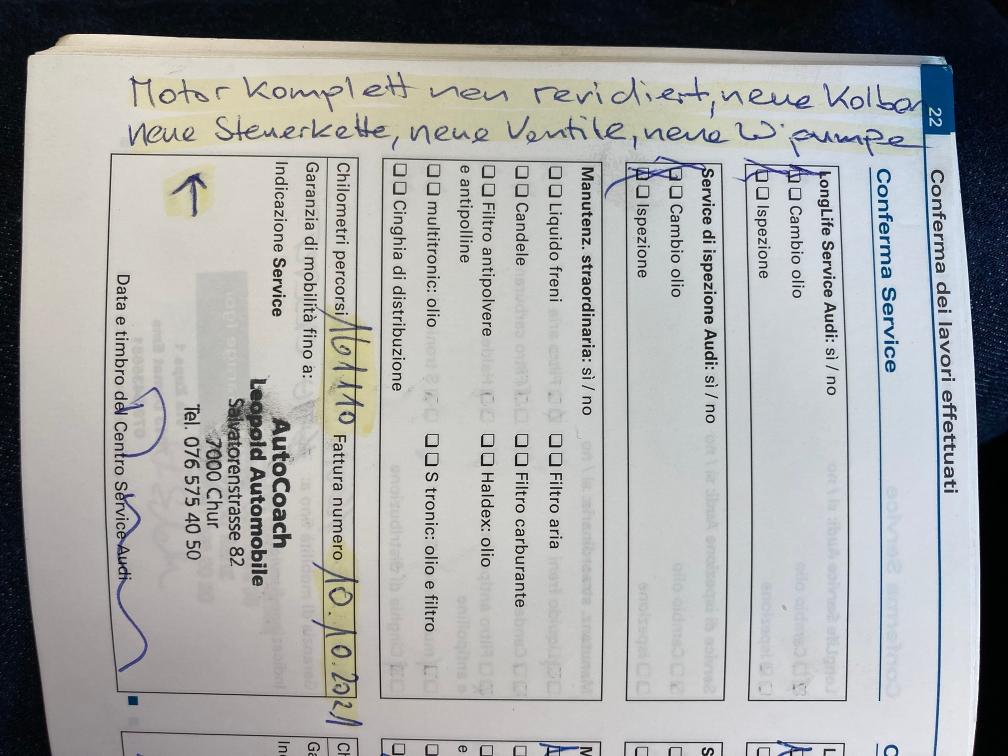 Motor Komplett neu revidiert, neue Kolben
neue Steuerkette, neue Ventile, neue W'pumpe
22
Conferma dei lavori effettuati
Conferma Service
LongLife Service Audi: sì / no
☐ ☐ Cambio olio
☐ ☐ Ispezione
Service di ispezione Audi: sì / no
☐ ☐ Cambio olio
☐ ☐ Ispezione
Manutenz. straordinaria: sì / no
☐ ☐ Liquido freni ☐ ☐ Filtro aria
☐ ☐ Candele ☐ ☐ Filtro carburante
☐ ☐ Filtro antipolvere ☐ ☐ Haldex: olio
e antipolline
☐ ☐ multitronic: olio ☐ ☐ S tronic: olio e filtro
☐ ☐ Cinghia di distribuzione
Chilometri percorsi 161110 Fattura numero 10.10.2021
Garanzia di mobilità fino a:
Indicazione Service
AutoCoach
Leopold Automobile
Salvatorenstrasse 82
7000 Chur
Tel. 076 575 40 50
Data e timbro del Centro Service Audi